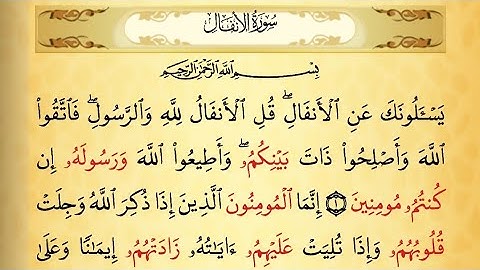 سُورَةُ الأَنفَالِ
بِسْمِ اللَّهِ الرَّحْمَٰنِ الرَّحِيمِ
يَسْـَٔلُونَكَ عَنِ ٱلْأَنفَالِۖ قُلِ ٱلْأَنفَالُ لِلَّهِ وَٱلرَّسُولِۖ فَٱتَّقُوا۟
ٱللَّهَ وَأَصْلِحُوا۟ ذَاتَ بَيْنِكُمُۥۖ وَأَطِيعُوا۟ ٱللَّهَ وَرَسُولَهُۥ إِن
كُنتُمُۥ مُومِنِينَ ۝١ إِنَّمَا ٱلْمُومِنُونَ ٱلَّذِينَ إِذَا ذُكِرَ ٱللَّهُ وَجِلَتْ
قُلُوبُهُمُۥ وَإِذَا تُلِيَتْ عَلَيْهِمُۥ ءَايَـٰتُهُۥ زَادَتْهُمُۥ إِيمَـٰنًا وَعَلَىٰ